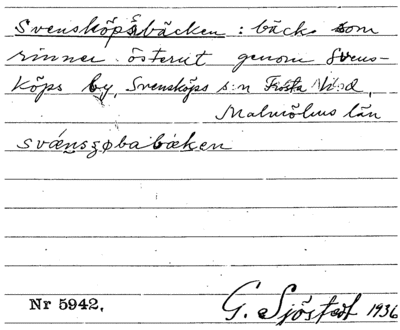 Svensköpsbäcken: bäck som
rinner österut genom Svens-
köps by, Svensköps s:n Frosta h:d,
Malmöhus län
Nr 5942.
G. Sjöstedt 1936